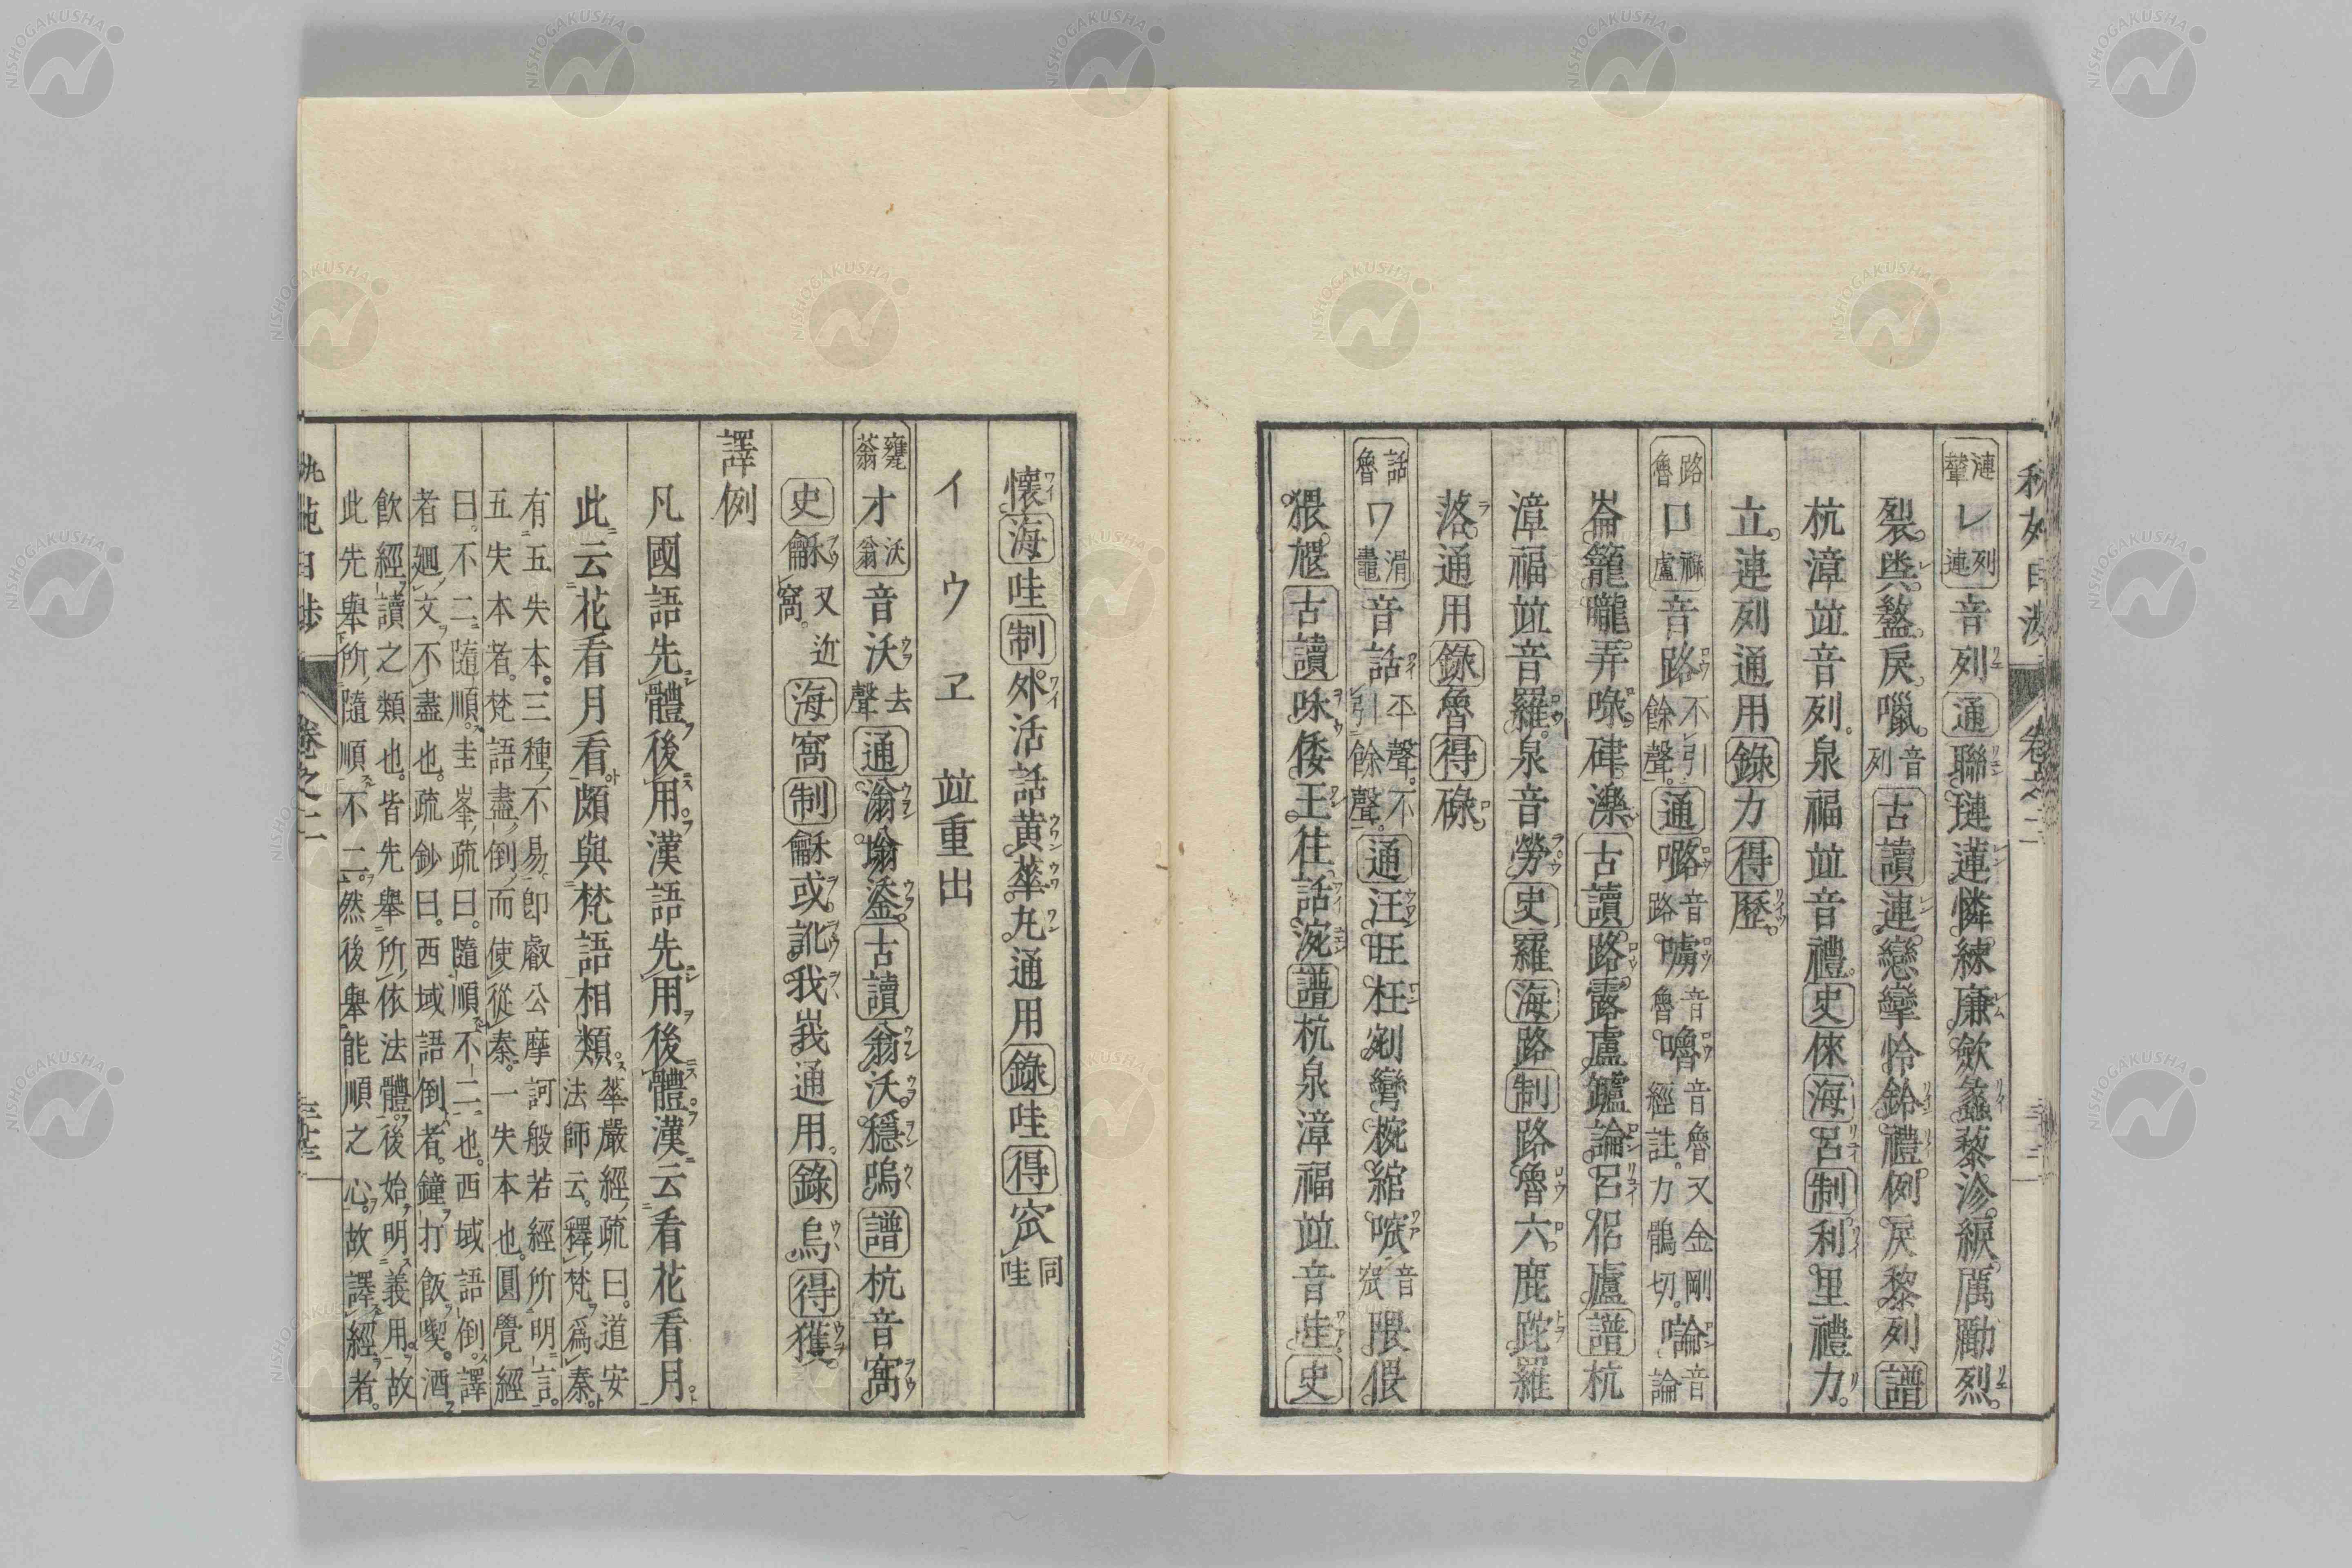 漣輦レ列連音列通聯璉蓮憐練廉斂蠡藜沴綟厲勵烈
裂盭盭戾囇音列古讀連戀攣怜鈴禮例戾黎列譜
杭漳竝音列泉福竝音禮史倈海呂制利里禮力
立連列通用錄力得歷
路魯ロ祿盧音路不引餘聲通㗉音路㗅音魯嚕音魯又金剛經註力鶻切㖮音論
崙籠嚨弄㖨硉濼古讀路露盧鑪論呂侶廬譜杭
漳福竝音羅泉音勞史羅海路制路魯六鹿跎羅
落通用錄魯得碌
話魯ワ滑鼃音話平聲不引餘聲通汪旺枉剜彎椀綰㗏音窊隈偎
猥尯古讀味倭王往話涴譜杭泉漳福竝音哇史
懷海哇制外活話黃華丸通用錄哇得窊同哇
イウヱ竝重出
甕蓊オ沃翁音沃去聲通滃塕鎏古讀翁沃穩嗚譜杭音窩
史龢又近窩海窩制龢或訛我峩通用錄烏得獲
譯例
凡國語先體後用漢語先用後體漢云看花看月
此云花看月看頗與梵語相類華嚴經疏曰道安法師云釋梵爲秦
有五失本三種不易卽叡公摩訶般若經所明言
五失本者梵語盡倒而使從秦一失本也圓覺經
曰不二隨順圭峯疏曰隨順不二也西域語倒譯
者廻文不盡也疏鈔曰西域語倒者鐘打飯喫酒
飮經讀之類也皆先舉所依法體後始明義用故
此先舉所隨順不二然後舉能順之心故譯經者
卷之二